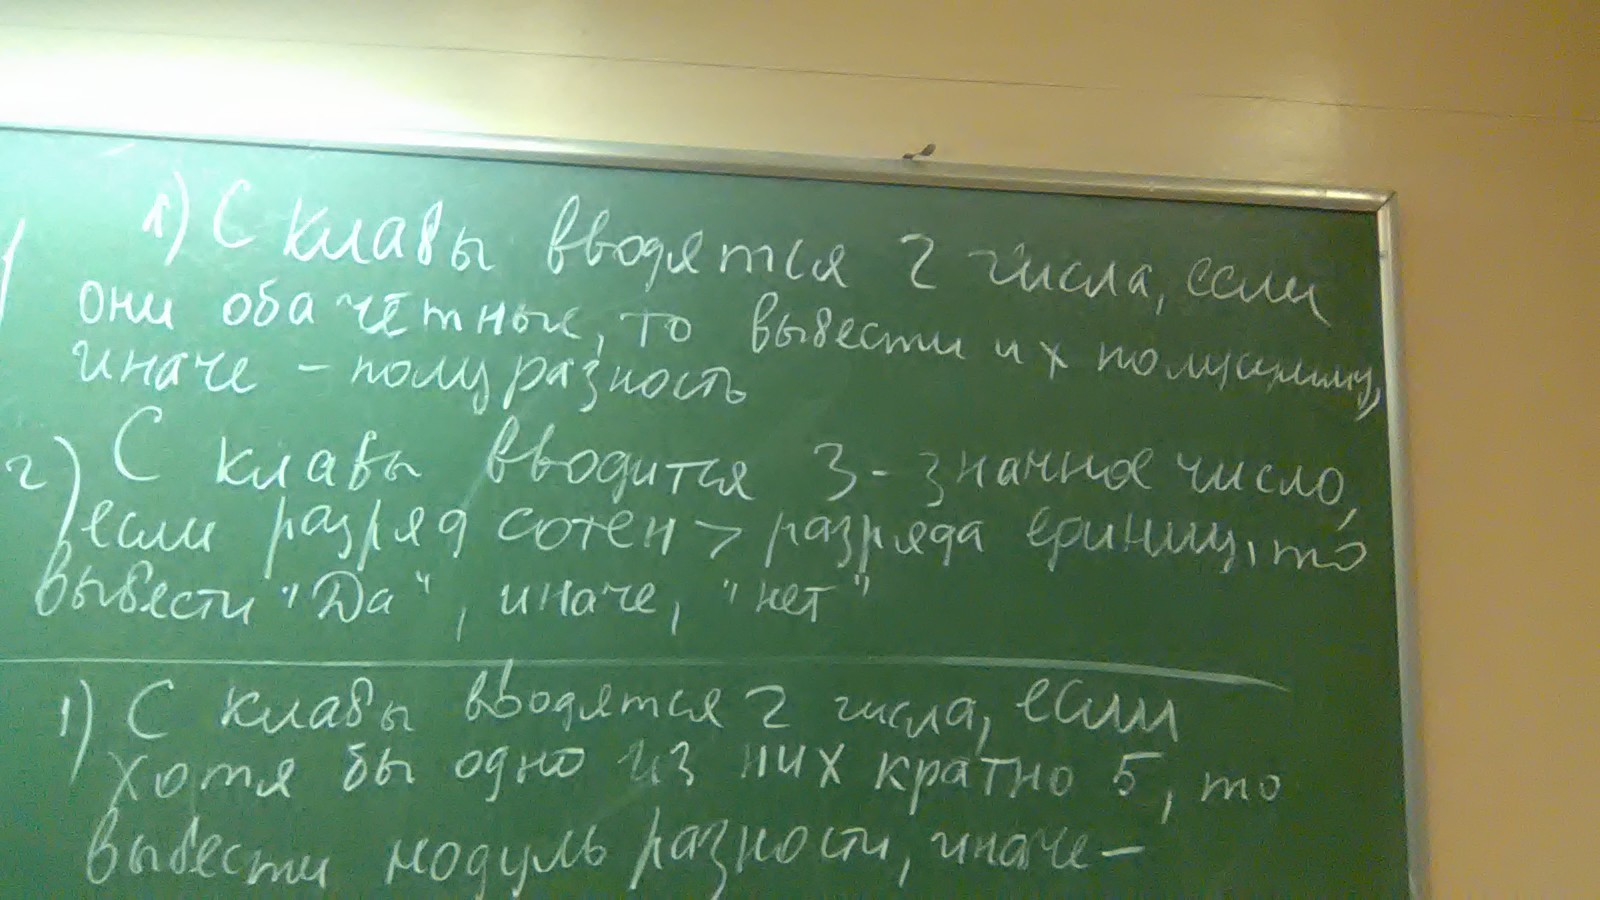 1) С клавы вводятся 2 числа, если
они оба чётные, то вывести их полусумму,
иначе - полуразность
2) С клавы вводится 3-значное число,
если разряд сотен > разряда единиц, то
вывести "Да", иначе, "нет"
1) С клавы вводятся 2 числа, если
хотя бы одно из них кратно 5, то
вывести модуль разности, иначе -